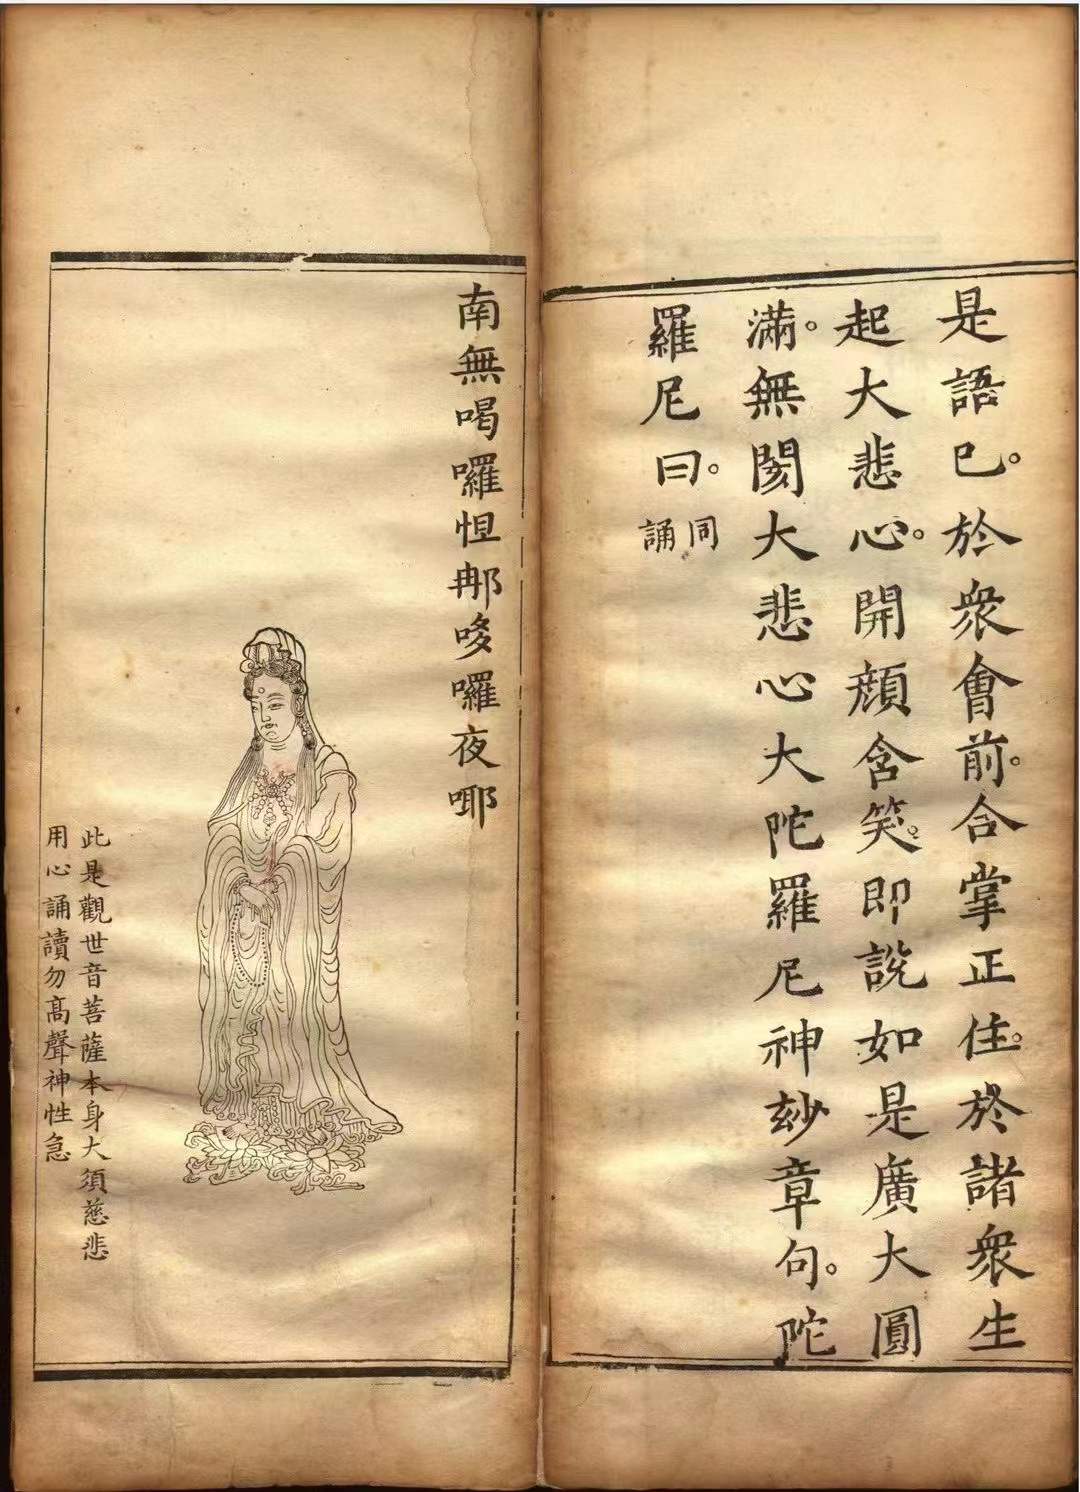 是語已。於衆會前。合掌正住。於諸衆生
起大悲心。開顔含笑。即説如是廣大圓
滿。無閡大悲心大陀羅尼神玅章句。陀
羅尼曰。同誦
南無喝囉怛那哆囉夜㖿
此是觀世音菩薩本身大須慈悲
用心誦讀勿高聲神性急